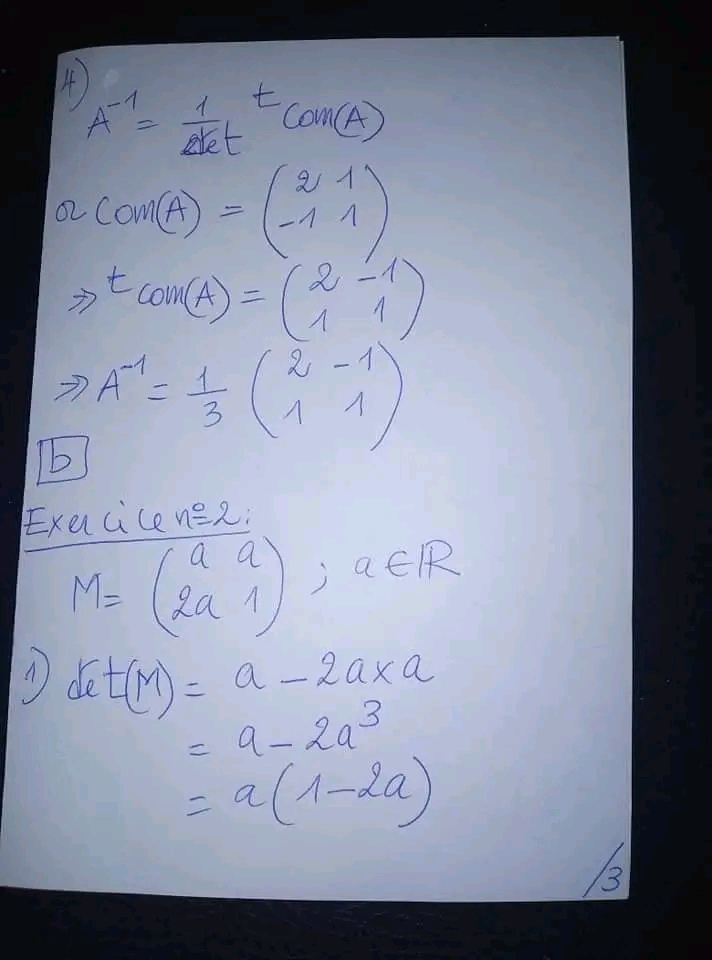 4)
A⁻¹ = 1/det ᵗCom(A)
or Com(A) = (2 1
-1 1)
⇒ ᵗCom(A) = (2 -1
1 1)
⇒ A⁻¹ = 1/3 (2 -1
1 1)
b
Exercice n°2:
M= (a a
2a 1) ; a∈ℝ
1) det(M) = a - 2a×a
= a - 2a³
= a(1-2a)
/3